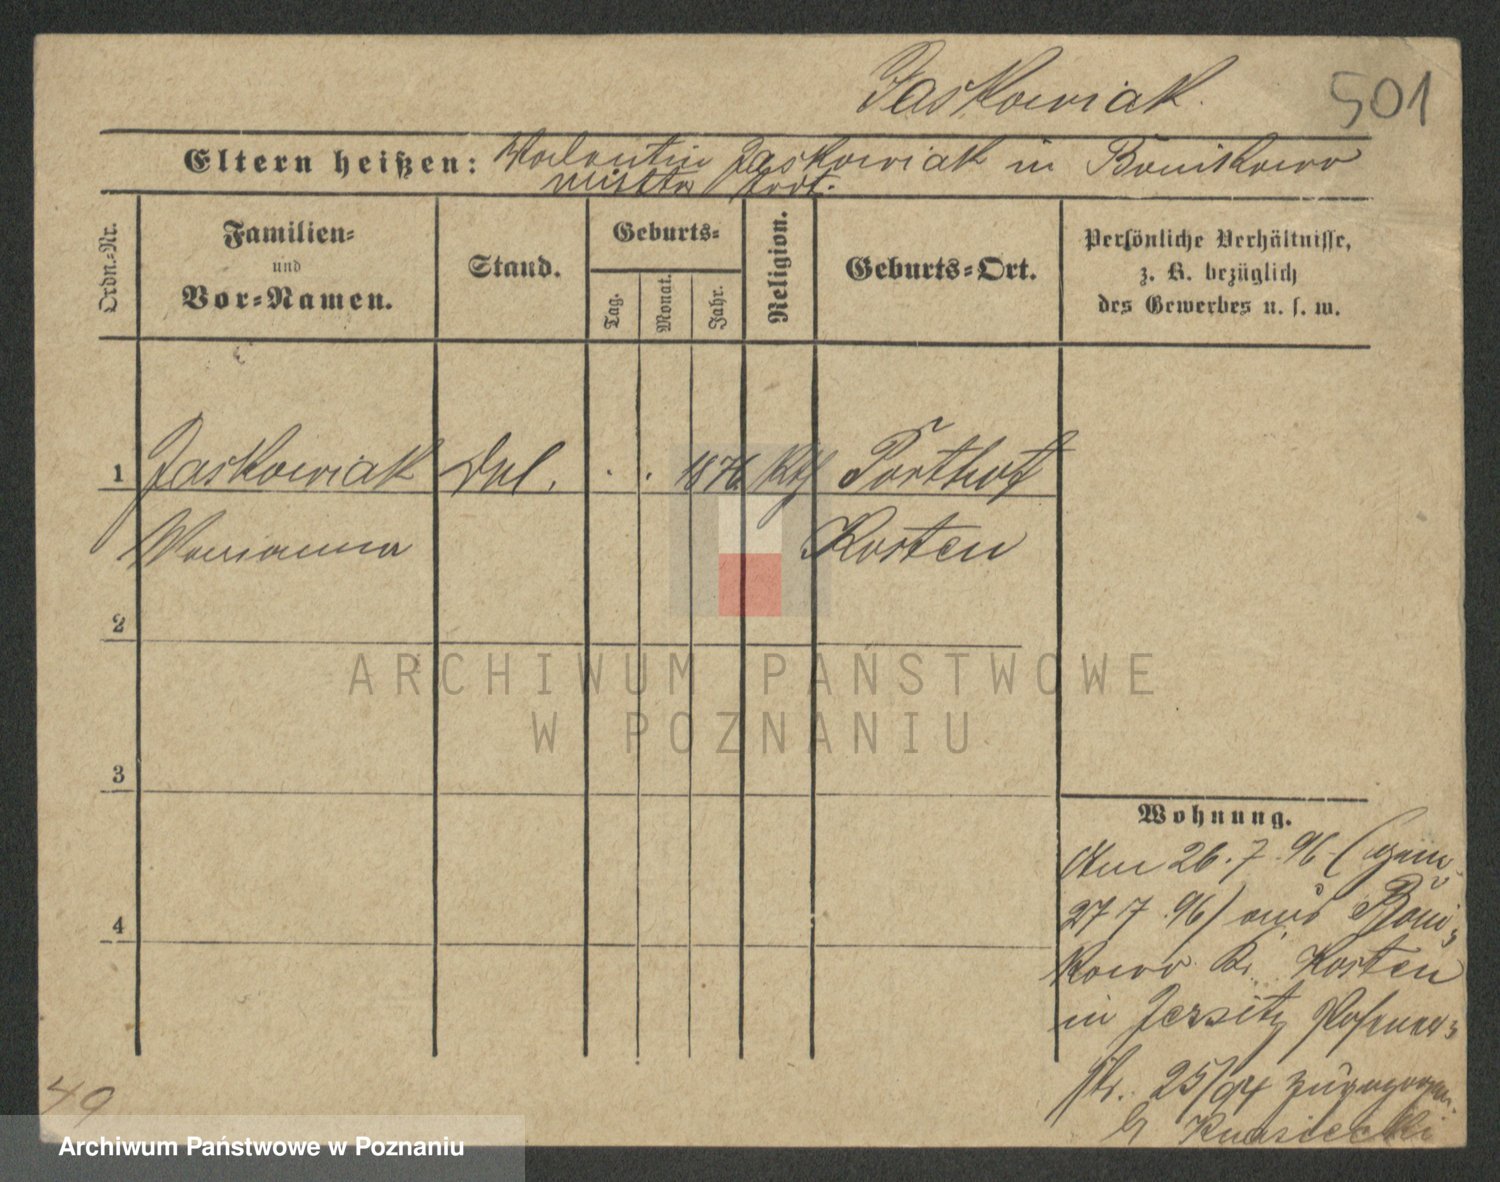 Jaskowiak
501
Eltern heißen: Valentin Jaskowiak in Bonikowo
Mutter todt.
Ordn.-Nr.
Familien-
und
Vor-Namen.
Stand.
Geburts-
Tag.
Monat.
Jahr.
Religion.
Geburts-Ort.
Persönliche Verhältnisse,
z. B. bezüglich
des Gewerbes u. s. w.
1 Jaskowiak . . 1876 Kth
Marianna Kosten
2
3
4
ARCHIWUM PAŃSTWOWE
W POZNANIU
Wohnung.
Am 26.7.96 (gem.
27 7.96) aus Boni-
kowo Kr. Kosten
in Jersitz Posener-
str. 25/94 zugezogen.
49
Archiwum Państwowe w Poznaniu